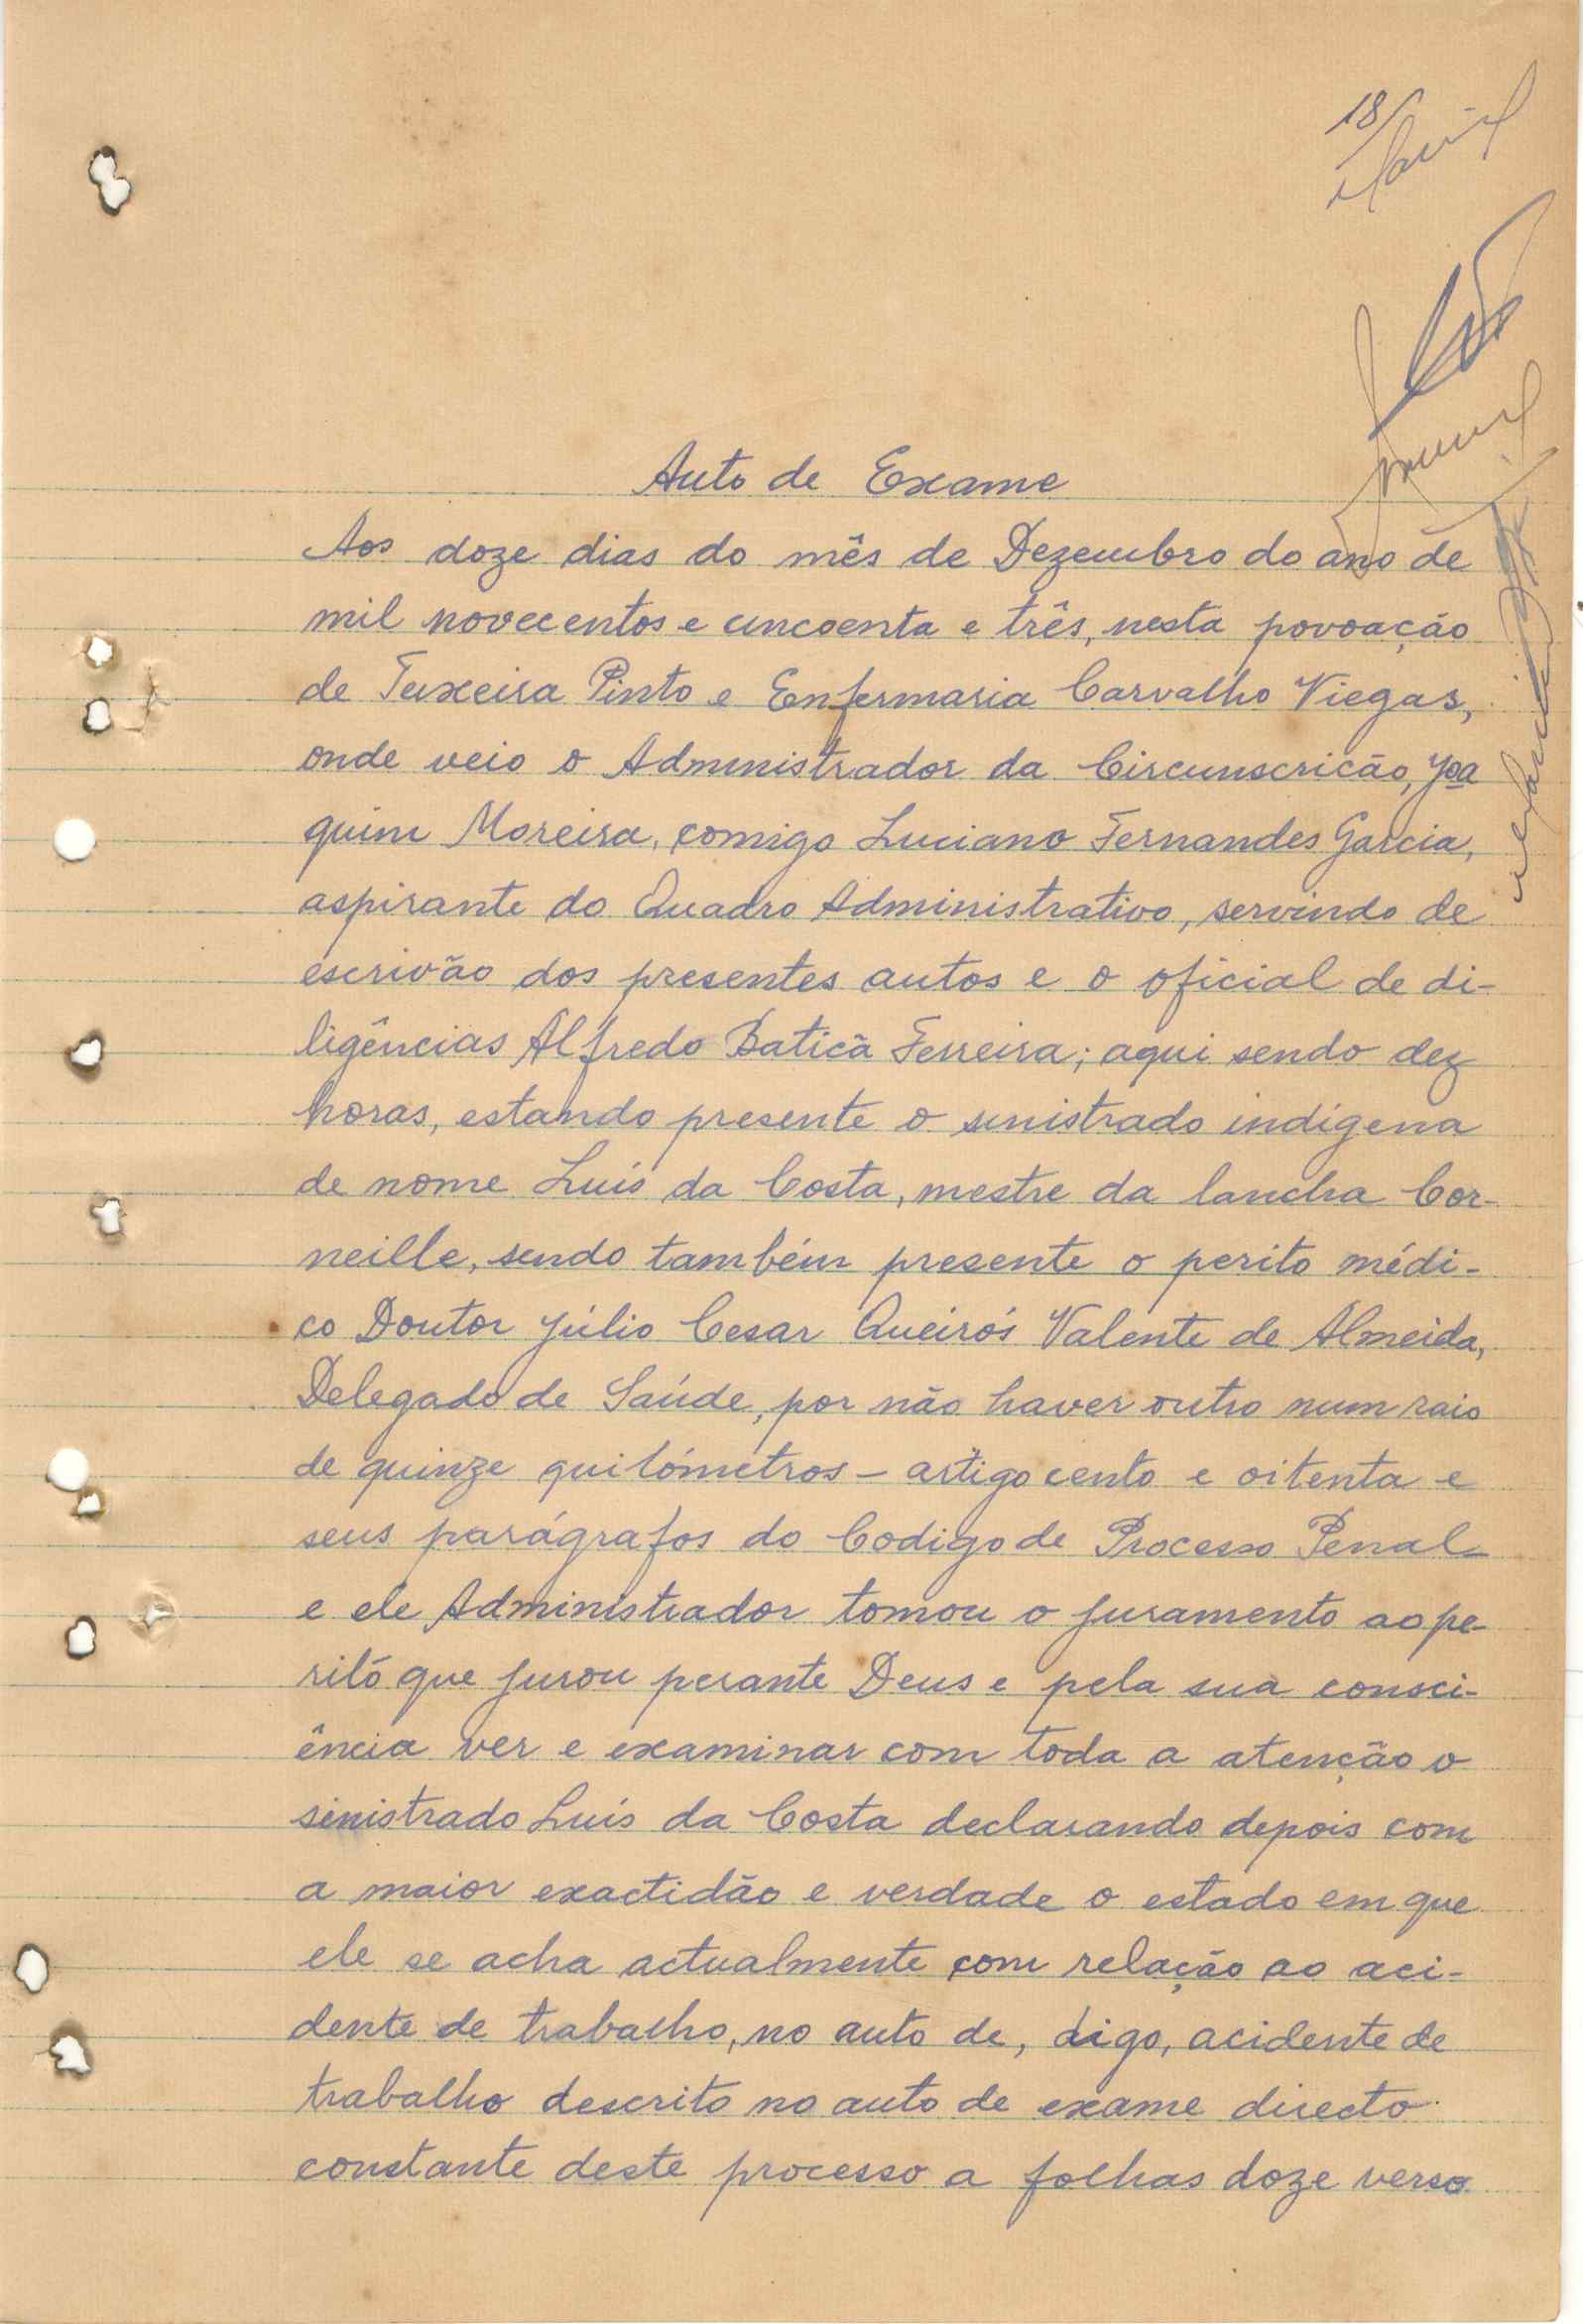 18
Auto de Exame
Aos doze dias do mês de Dezembro do ano de
mil novecentos e cincoenta e três, nesta povoação
de Teixeira Pinto e Enfermaria Carvalho Viegas,
onde veio o Administrador da Circunscricão, Joa
quim Moreira, comigo Luciano Fernandes Garcia,
aspirante do Quadro Administrativo, servindo de
escrivão dos presentes autos e o oficial de di-
ligências Alfredo Baticã Ferreira; aqui sendo dez
horas, estando presente o sinistrado indígena
de nome Luís da Costa, mestre da lancha Cor-
neille, sendo também presente o perito médi-
co Doutor Júlio Cesar Queirós Valente de Almeida,
Delegado de Saúde, por não haver outro num raio
de quinze quilómetros - artigo cento e oitenta e
seus parágrafos do Codigo de Processo Penal -
e ele Administrador tomou o juramento ao pe-
rito que jurou perante Deus e pela sua consci-
ência ver e examinar com toda a atenção o
sinistrado Luís da Costa declarando depois com
a maior exactidão e verdade o estado em que
ele se acha actualmente com relação ao aci-
dente de trabalho, no auto de, digo, acidente de
trabalho descrito no auto de exame directo
constante deste processo a folhas doze verso